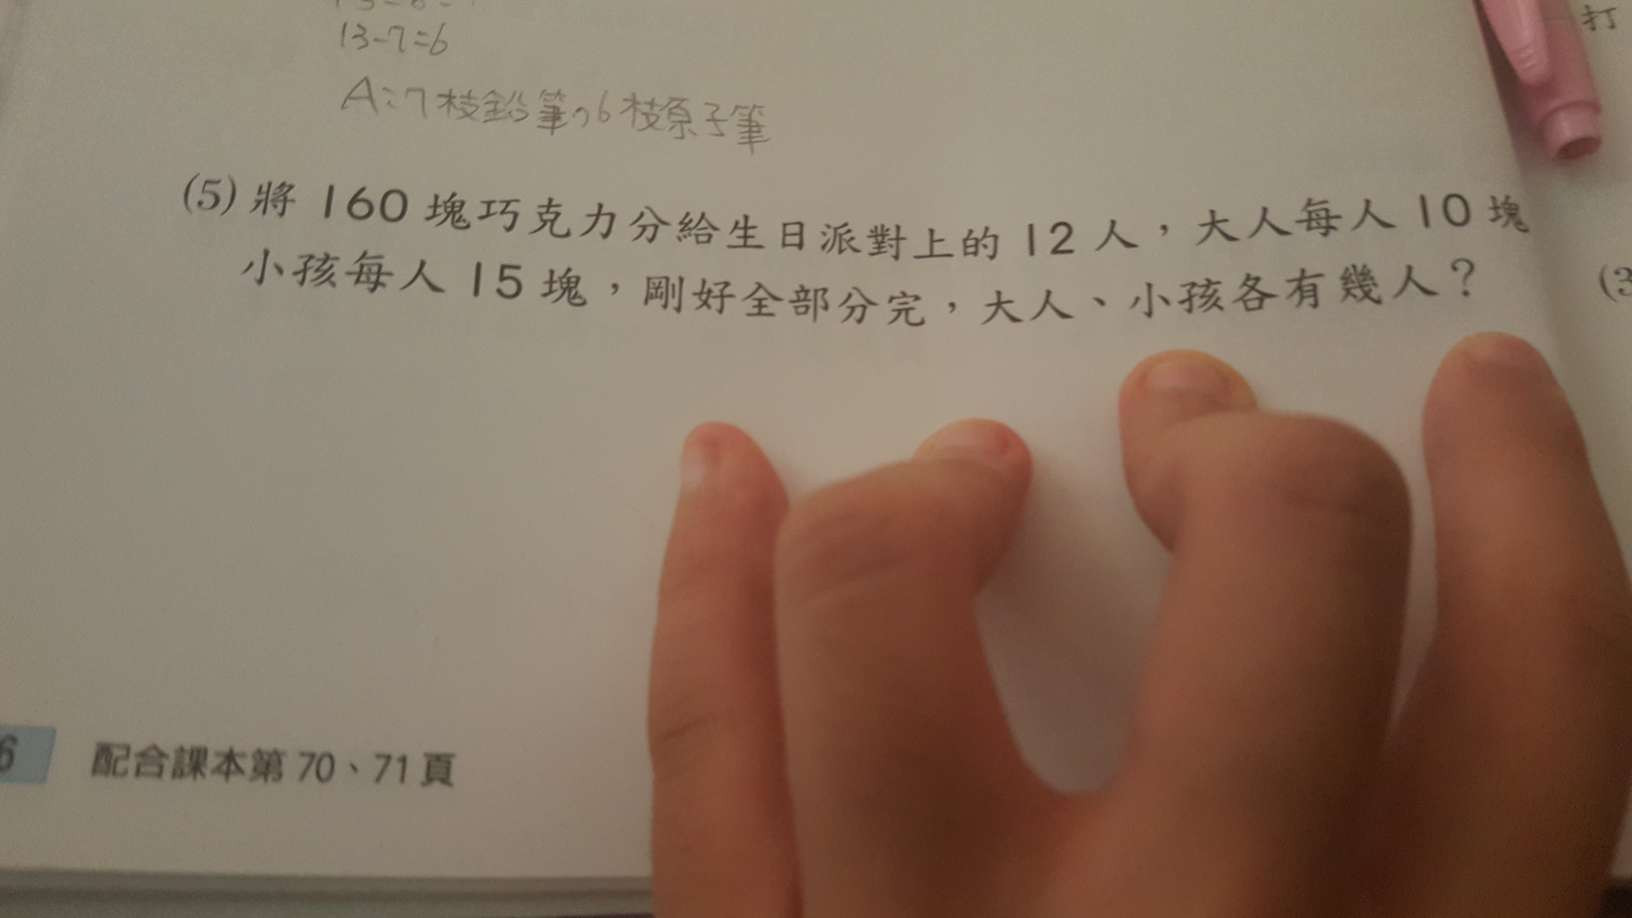 13-7=6
A:7枝鉛筆,6枝原子筆
打
(5) 將 160 塊巧克力分給生日派對上的 12 人，大人每人 10 塊
小孩每人 15 塊，剛好全部分完，大人、小孩各有幾人？
(3
6 配合課本第 70、71 頁